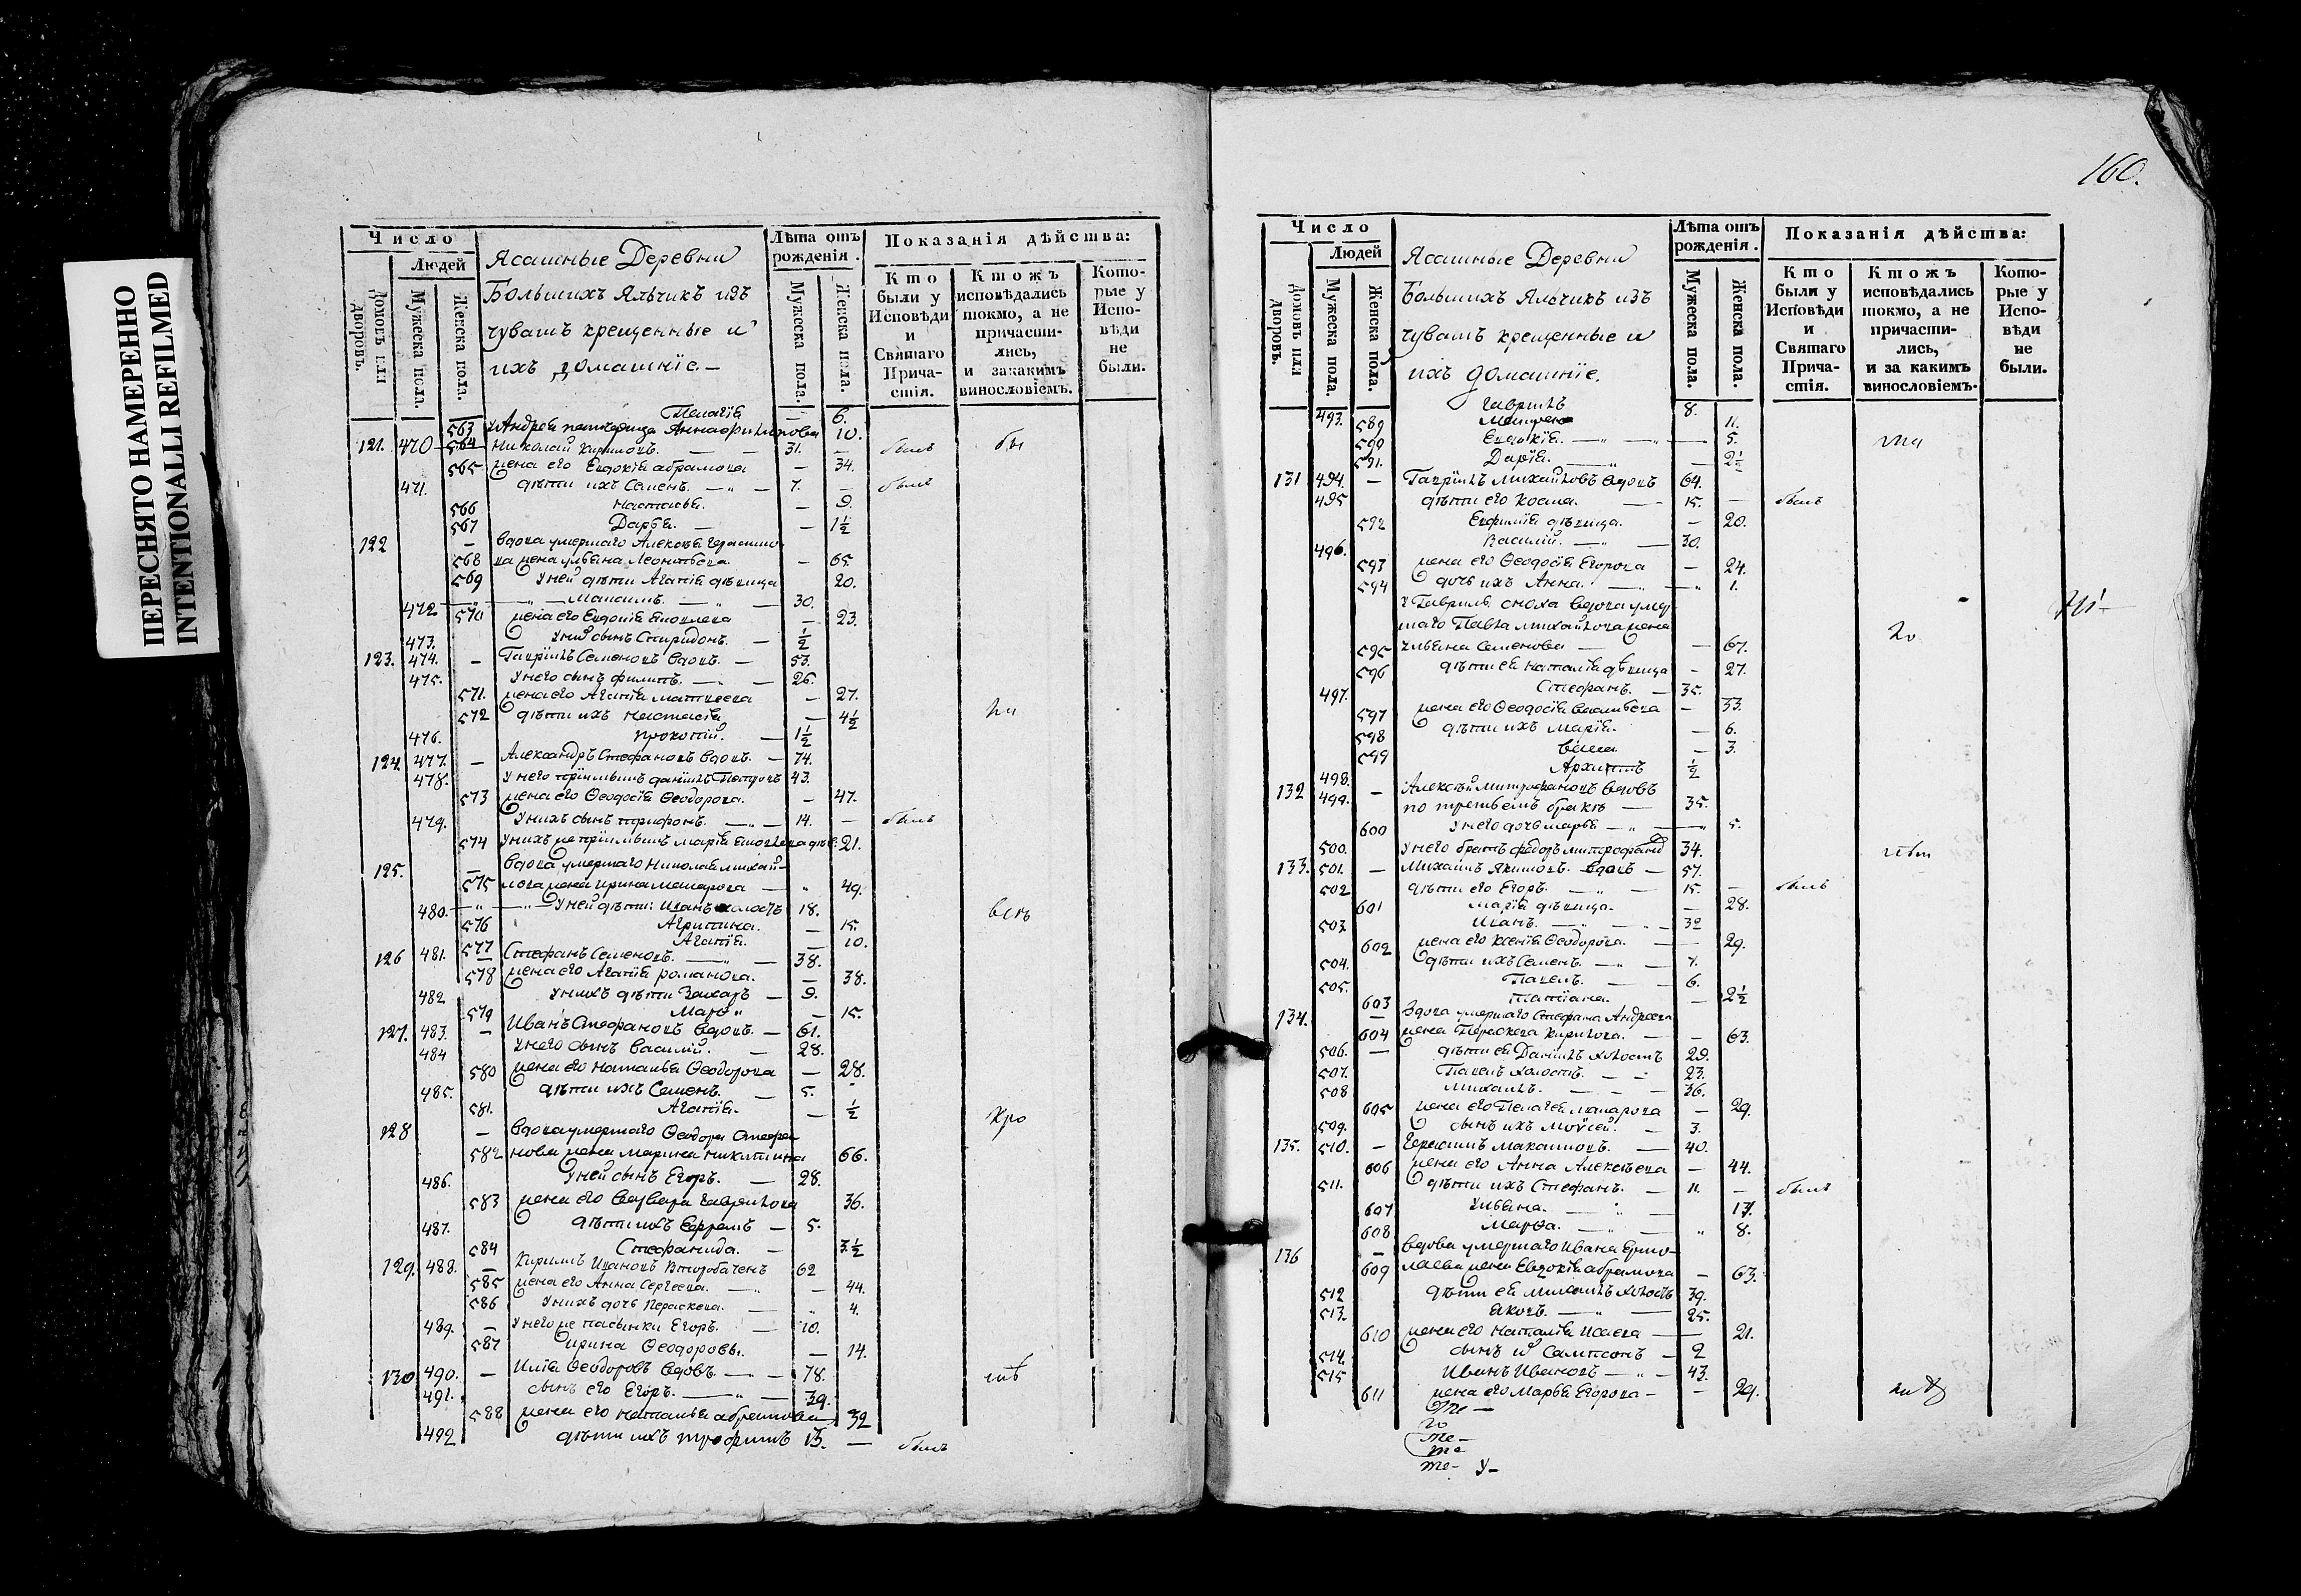 ПЕРЕСНЯТО НАМЕРЕННО
INTENTIONALLI REFILMED
Число
Людей
Домовъ или дворовъ.
Мужеска пола.
Женска пола.
Ясашные Деревни
Большихъ Яльчикъ изъ
чувашъ крещенные и
ихъ домашніе. –
Лѣта отъ рожденія.
Мужеска пола.
Женска пола.
Показанія дѣйства:
Кто были у Исповѣди и Святаго Причастія.
Ктожъ исповѣдались токмо, а не причастились, и за какимъ винословіемъ.
Которые у Исповѣди не были.
Пелагія — 6.
563 10.
121. 470 564 Николай Кириловъ. — 31. — былъ бы
565 жена его Евдокія Абрамова — 34.
471. дѣти ихъ Семенъ. — 7. — былъ
566 Наталья. — 9.
567 Дарья. — — 1½
122 — вдова умершаго Алексѣя Герасимо
568 ва жена Ульяна Леонтьева — 65.
569 У ней дѣти Агапія дѣвица 20.
472 Максимъ. — 30.
570 жена его Евдокія — 23.
473. У нихъ сынъ Спиридонъ. — ½
123. 474. — Гаврілъ Семеновъ вдовъ. — 53.
475. У него сынъ Филипъ. — 26.
571. жена его Агапія Матвеева — 27.
572 дѣти ихъ Настасія — 4½
476. Прокопій. — 1½
124. 477. — Александръ Стефановъ вдовъ. — 74.
478. У него пріимышъ Данілъ Петровъ 43.
573 жена его Ѳеодосія Ѳеодорова. — 47.
479. У нихъ сынъ Трифонъ. — 14. — былъ
574 У нихъ же пріимышъ Марія 21.
125. — вдова умершаго Николая Михай-
575 лова жена Ирина Макарова — 49.
480. У ней дѣти: Иванъ холостъ 18. всѣ
576 Агрипина. — 15.
577 Агапія. — 10.
126 481. — Стефанъ Семеновъ. — 38.
578 жена его Агапія Романова. — 38.
482 У нихъ дѣти Захаръ — 9.
579 Марѳа — 15.
127. 483. — Иванъ Стефановъ вдовъ. — 61.
484 У него сынъ Василій. — 28.
580 жена его Наталья Ѳеодорова — 28.
485. дѣти ихъ Семенъ. — 5.
581. Агапія. — ½
кро
128 — вдова умершаго Ѳеодора Стефа-
582 нова жена Марина Никитина 66.
486. У ней сынъ Егоръ. — 28.
583 жена его Варвара Гаврилова 36.
487. дѣти ихъ Ефремъ — 5.
584 Стефанида. — 3½
129. 488. — Кирилъ Ивановъ Второбаченъ 62
585 жена его Анна Сергеева. — 44.
586 У нихъ дочь Параскева. 4.
489. — У него же пасынки Егоръ. — 10.
587 Ирина Ѳеодоровы. — 14.
130 490. — Илія Ѳеодоровъ вдовъ. — 78.
491. сынъ его Егоръ. — 39.
588 жена его Наталья Абрамова 32
492 дѣти ихъ Трофимъ 13. — былъ
160.
Число
Людей
Домовъ или дворовъ.
Мужеска пола.
Женска пола.
Ясашные Деревни
Большихъ Яльчикъ изъ
чувашъ крещенные и
ихъ домашніе.
Лѣта отъ рожденія.
Мужеска пола.
Женска пола.
Показанія дѣйства:
Кто были у Исповѣди и Святаго Причастія.
Ктожъ исповѣдались токмо, а не причастились, и за какимъ винословіемъ.
Которые у Исповѣди не были.
493. Гаврілъ 8.
589 11.
590 Евдокія. — 5.
591. Дарія. — 2½
131 494. — Гаврілъ Михайловъ вдовъ 64.
495 дѣти его Косма. — 15. — былъ
592 Евфимія дѣвица. — 20.
496. Василій. — 30.
593 жена его Ѳеодосія Егорова — 24.
594 дочь ихъ Анна. — 1.
У Гаврилы сноха вдова умер-
шаго Павла Михайлова жена
595 Ульяна Семенова — 67.
596 дѣти ея Наталія дѣвица — 27.
497. Стефанъ. — 35.
597 жена его Ѳеодосія Васильева — 33.
598 дѣти ихъ Марія. — 6.
599 — 3.
498. Архипъ ½
132 499. — Алексѣй Митрофановъ вдовъ
по третьемъ бракѣ — 35.
600 У него дочь Марья — 5.
500. У него братъ Федоръ Митрофановъ 34.
133. 501. — Михаилъ Якимовъ. вдовъ — 57.
502 дѣти его Егоръ. — 15. — былъ
601 Марія дѣвица. — 28.
503. Иванъ. — 32
602 жена его Ксенія Ѳеодорова. — 29.
504. дѣти ихъ Семенъ. — 7.
505. Павелъ. — 6.
603 Татіана. — 2½
134. — Вдова умершаго Стефана Андреева
604 жена Параскева Кирилова. — 63.
506. — дѣти ея Данилъ холостъ 29.
507. Павелъ холостъ. — 23.
508 Михаилъ. — 36.
605 жена его Пелагея Макарова — 29.
509. сынъ ихъ Моѵсей. — 3.
135. 510. — Герасимъ Максимовъ. — 40.
606 жена его Анна Алексѣева — 44.
511. дѣти ихъ Стефанъ. — 11. — былъ
607 Ульяна. — 17.
608 Марѳа. — 8.
136 — вдова умершаго Ивана Ермо-
609 лаева жена Евдокія Абрамова — 63.
512 дѣти ея Михаилъ холостъ 39.
513. Яковъ. — 25.
610 жена его Наталія Исаева — 21.
514. сынъ и Сампсонъ — 2
515 Иванъ Ивановъ — 43.
611 жена его Марья Егорова — 29.